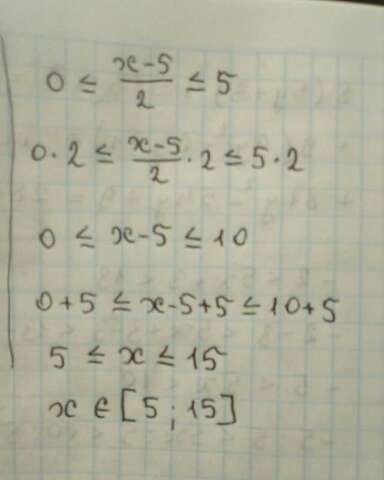 0 ≤ x-5/2 ≤ 5
0·2 ≤ x-5/2 ·2 ≤ 5·2
0 ≤ x-5 ≤ 10
0+5 ≤ x-5+5 ≤ 10+5
5 ≤ x ≤ 15
x ∈ [5 ; 15]